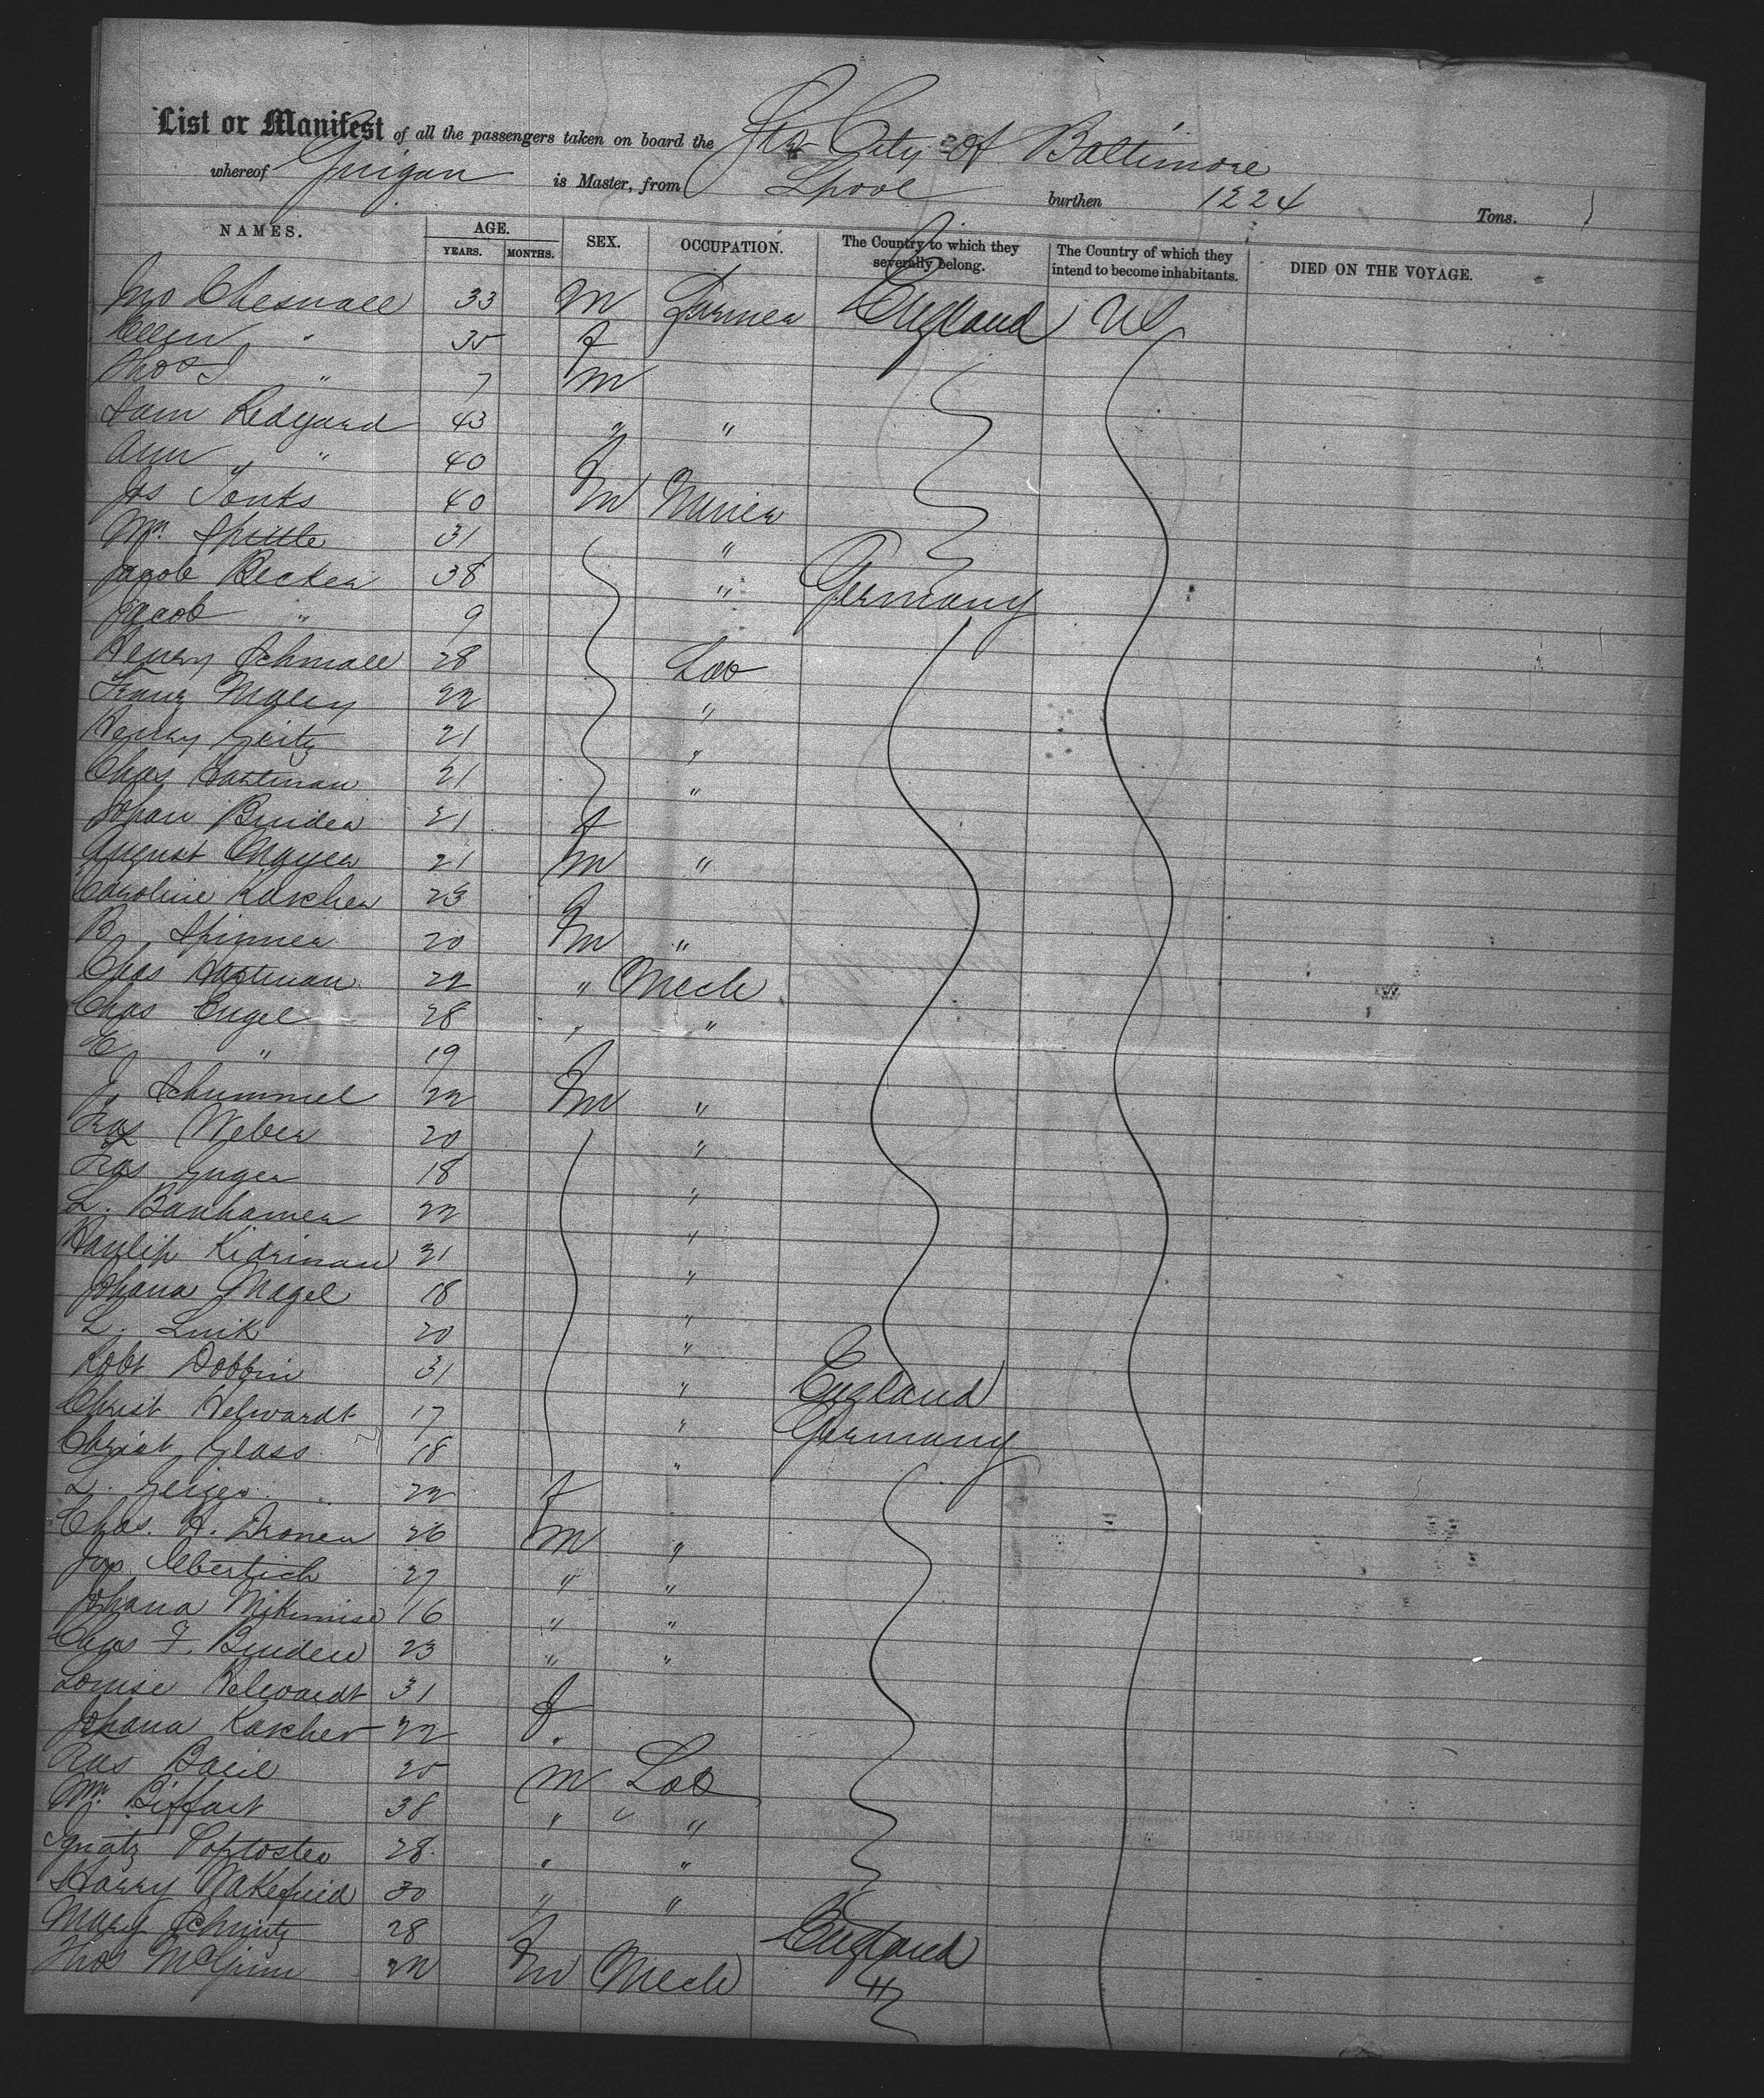 List or Manifest of all the passengers taken on board the Str City of Baltimore
whereof Guigan is Master, from Lpool burthen 1224 Tons.
NAMES. AGE. SEX. OCCUPATION. The Country to which they severally belong. The Country of which they intend to become inhabitants. DIED ON THE VOYAGE.
YEARS. MONTHS.
Jno Chesnall 33 M Farmer England US
Ellen " 35 f
Thos J " 7 M
Sam Redyard 43 " "
Ann " " 40 f
Jos Tonks 40 M Miner
Wm Spittle 31 "
Jacob Becker 38 " Germany
Jacob " 9
Henry Schmall 28 Lab
Franz 22 "
Henry 21 "
Chas Hartman 21 "
Johan Binder 21 f
August Mayer 21 M "
Caroline Karcher 23 f
B Spinner 20 M "
Chas Hartman 22 " Mech
Chas Engel 28 " "
E " 19 f
J Schummel 22 M "
Fras Weber 20 "
Fras 18 "
L. Banhamer 22 "
Kidriman 31 "
Johana Nagel 18 "
L. Luik 20 "
Robt Dobbin 31 " England
Christ Helwardt 17 " Germany
Christ Glass 18 "
L. Geiger 22 f
Chas. H. 26 M "
Jos Ebertich 27 " "
Johana 16 " "
Chas F. Binder 23 " "
Louise Helwardt 31 f
Johana Karcher 22 "
25 M Lab
Wm Biffart 38 " " "
Ignatz 28 " "
Harry Wakefield 30 " "
Mary Schmitz 28 f England
Thos McGinn 22 M Mech "